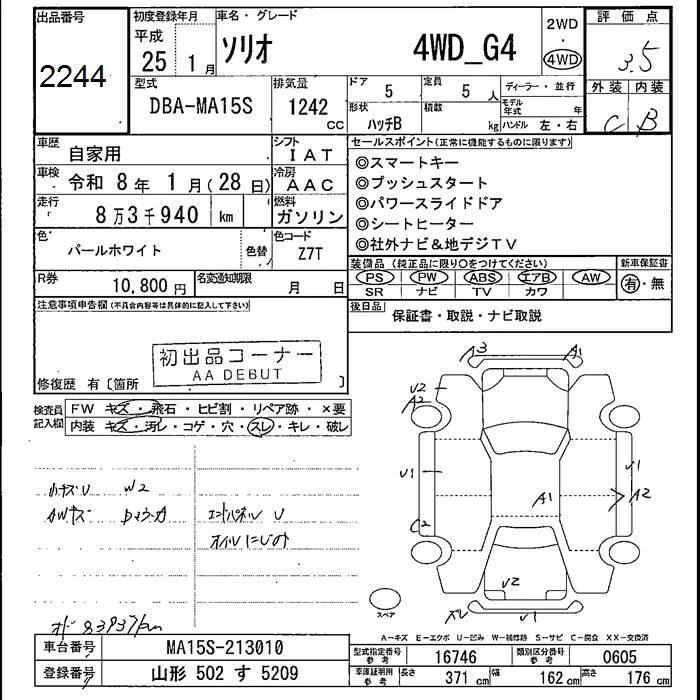 出品番号
2244
初度登録年月
平成
25 1月
車名・グレード
ソリオ 4WD_G4
2WD
・
4WD
評価点
3.5
外装 内装
C B
型式
DBA-MA15S
排気量
1242 CC
ドア
5
定員
5人
形状
ハッチB
積載
kg
ディーラー・並行
モデル年式 年
ハンドル 左・右
車歴 自家用
シフト IAT
車検 令和 8年 1月(28日)
冷房 AAC
走行 8万3千940 km
燃料 ガソリン
色 パールホワイト 色替
色コード Z7T
R券 10,800円
名変通知期限 月 日
セールスポイント(正常に機能するものに限ります)
◎スマートキー
◎プッシュスタート
◎パワースライドドア
◎シートヒーター
◎社外ナビ&地デジTV
装備品(純正品に限り○をつけてください)
PS PW ABS エアB AW
SR ナビ TV カワ
新車保証書
有・無
後日品
保証書・取説・ナビ取説
注意事項申告欄(不具合内容等は具体的に記入して下さい)
初出品コーナー
AA DEBUT
修復歴 有〔箇所 〕
検査員記入欄
FW キズ・飛石・ヒビ割・リペア跡・×要
内装 キズ・汚レ・コゲ・穴・スレ・キレ・破レ
小キズU W2
AWキズ
エンドパネル U
オイルにじみ
A3 A1
V2
A2
V1 V1
A1 A2
C2
V2
スレ V1
スペア
83937km
A-キズ E-エクボ U-凹み W-補修跡 S-サビ C-腐食 XX-交換済
車台番号 MA15S-213010
登録番号 山形 502 す 5209
型式指定番号 参考 16746
類別区分番号 参考 0605
車庫証明用 参考 長さ 371 cm 幅 162 cm 高さ 176 cm